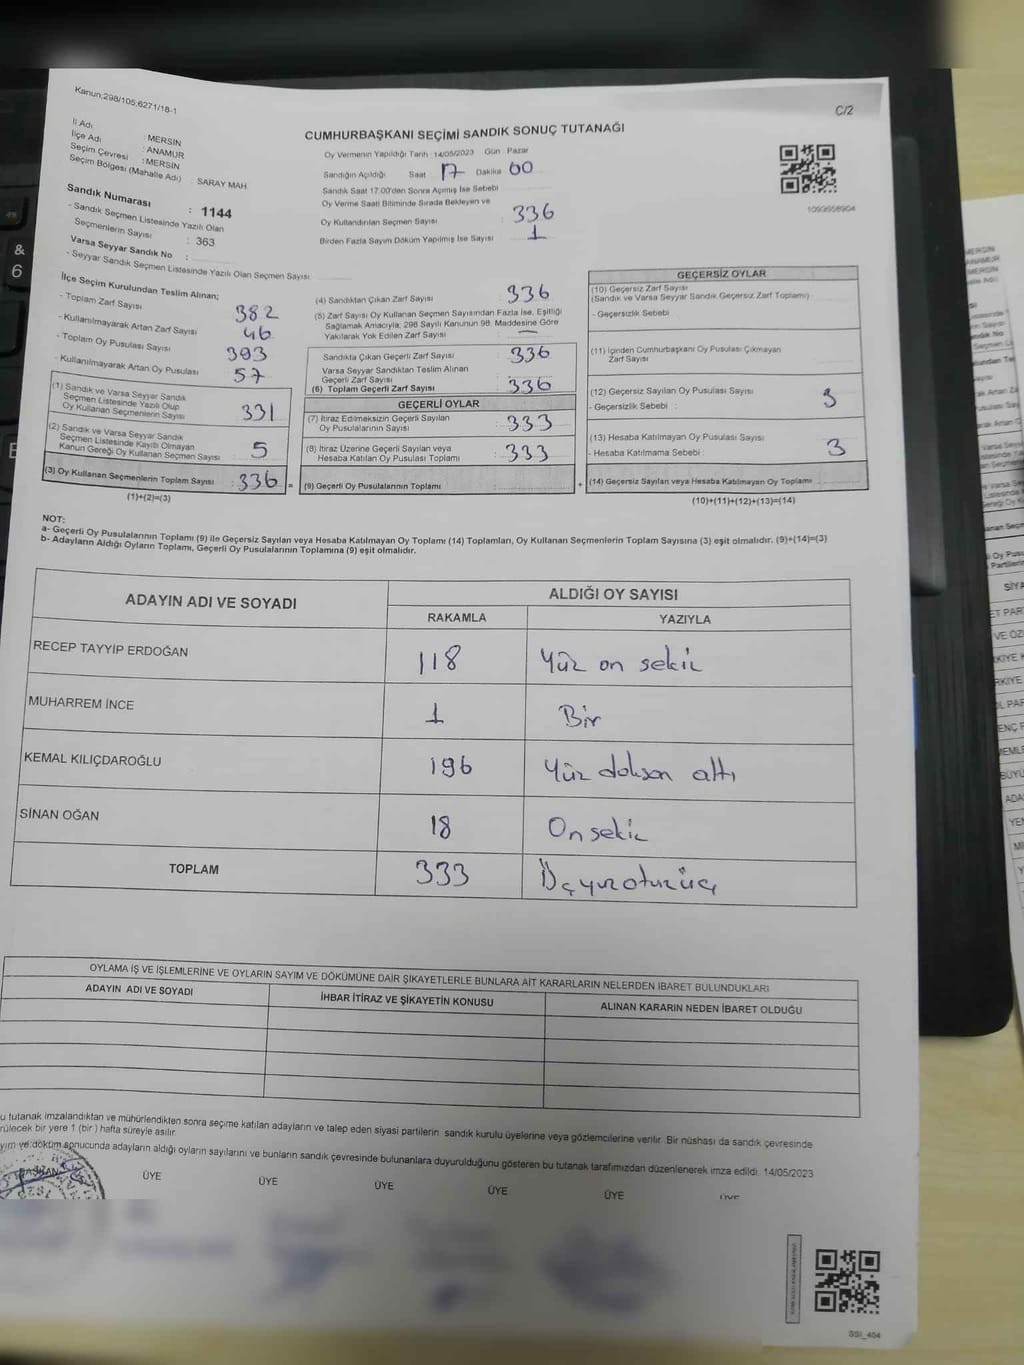 Kanun;298/105;6271/18-1
C/2
İl Adı : MERSİN
İlçe Adı : ANAMUR
Seçim Çevresi : MERSİN
Seçim Bölgesi (Mahalle Adı) : SARAY MAH.
Sandık Numarası : 1144
- Sandık Seçmen Listesinde Yazılı Olan
Seçmenlerin Sayısı : 363
Varsa Seyyar Sandık No :
- Seyyar Sandık Seçmen Listesinde Yazılı Olan Seçmen Sayısı :
CUMHURBAŞKANI SEÇİMİ SANDIK SONUÇ TUTANAĞI
Oy Vermenin Yapıldığı Tarih : 14/05/2023 Gün : Pazar
Sandığın Açıldığı Saat 17 Dakika 00
Sandık Saat 17:00'den Sonra Açımış İse Sebebi
Oy Verme Saati Bitiminde Sırada Bekleyen ve
Oy Kullandırılan Seçmen Sayısı 336
Birden Fazla Sayım Döküm Yapılmış İse Sayısı 1
1093958904
İlçe Seçim Kurulundan Teslim Alınan;
- Toplam Zarf Sayısı 382
- Kullanılmayarak Artan Zarf Sayısı 46
- Toplam Oy Pusulası Sayısı 393
- Kullanılmayarak Artan Oy Pusulası 57
(1) Sandık ve Varsa Seyyar Sandık
Seçmen Listesinde Yazılı Olup
Oy Kullanan Seçmenlerin Sayısı 331
(2) Sandık ve Varsa Seyyar Sandık
Seçmen Listesinde Kayıtlı Olmayan
Kanun Gereği Oy Kullanan Seçmen Sayısı 5
(3) Oy Kullanan Seçmenlerin Toplam Sayısı : 336 =
(1)+(2)=(3)
(4) Sandıktan Çıkan Zarf Sayısı 336
(5) Zarf Sayısı Oy Kullanan Seçmen Sayısından Fazla İse, Eşitliği
Sağlamak Amacıyla; 298 Sayılı Kanunun 98. Maddesine Göre
Yakılarak Yok Edilen Zarf Sayısı : —
Sandıkta Çıkan Geçerli Zarf Sayısı 336
Varsa Seyyar Sandıktan Teslim Alınan
Geçerli Zarf Sayısı
(6) Toplam Geçerli Zarf Sayısı 336
GEÇERLİ OYLAR
(7) İtiraz Edilmeksizin Geçerli Sayılan
Oy Pusulalarının Sayısı 333
(8) İtiraz Üzerine Geçerli Sayılan veya
Hesaba Katılan Oy Pusulası Toplamı 333
(9) Geçerli Oy Pusulalarının Toplamı +
GEÇERSİZ OYLAR
(10) Geçersiz Zarf Sayısı
(Sandık ve Varsa Seyyar Sandık Geçersiz Zarf Toplamı)
- Geçersizlik Sebebi :
(11) İçinden Cumhurbaşkanı Oy Pusulası Çıkmayan
Zarf Sayısı
(12) Geçersiz Sayılan Oy Pusulası Sayısı 3
- Geçersizlik Sebebi :
(13) Hesaba Katılmayan Oy Pusulası Sayısı 3
- Hesaba Katılmama Sebebi :
(14) Geçersiz Sayılan veya Hesaba Katılmayan Oy Toplamı
(10)+(11)+(12)+(13)=(14)
NOT:
a- Geçerli Oy Pusulalarının Toplamı (9) ile Geçersiz Sayılan veya Hesaba Katılmayan Oy Toplamı (14) Toplamları, Oy Kullanan Seçmenlerin Toplam Sayısına (3) eşit olmalıdır. (9)+(14)=(3)
b- Adayların Aldığı Oyların Toplamı, Geçerli Oy Pusulalarının Toplamına (9) eşit olmalıdır.
ADAYIN ADI VE SOYADI
ALDIĞI OY SAYISI
RAKAMLA YAZIYLA
RECEP TAYYİP ERDOĞAN 118 Yüz on sekiz
MUHARREM İNCE 1 Bir
KEMAL KILIÇDAROĞLU 196 Yüz doksan altı
SİNAN OĞAN 18 On sekiz
TOPLAM 333 Üçyüzotuzüç
OYLAMA İŞ VE İŞLEMLERİNE VE OYLARIN SAYIM VE DÖKÜMÜNE DAİR ŞİKAYETLERLE BUNLARA AİT KARARLARIN NELERDEN İBARET BULUNDUKLARI
ADAYIN ADI VE SOYADI İHBAR İTİRAZ VE ŞİKAYETİN KONUSU ALINAN KARARIN NEDEN İBARET OLDUĞU
u tutanak imzalandıktan ve mühürlendikten sonra seçime katılan adayların ve talep eden siyasi partilerin sandık kurulu üyelerine veya gözlemcilerine verilir. Bir nüshası da sandık çevresinde
rülecek bir yere 1 (bir) hafta süreyle asılır.
yım ve döküm sonucunda adayların aldığı oyların sayılarını ve bunların sandık çevresinde bulunanlara duyurulduğunu gösteren bu tutanak tarafımızdan düzenlenerek imza edildi. 14/05/2023
BAŞKAN ÜYE ÜYE ÜYE ÜYE ÜYE ÜYE
SSİ_404